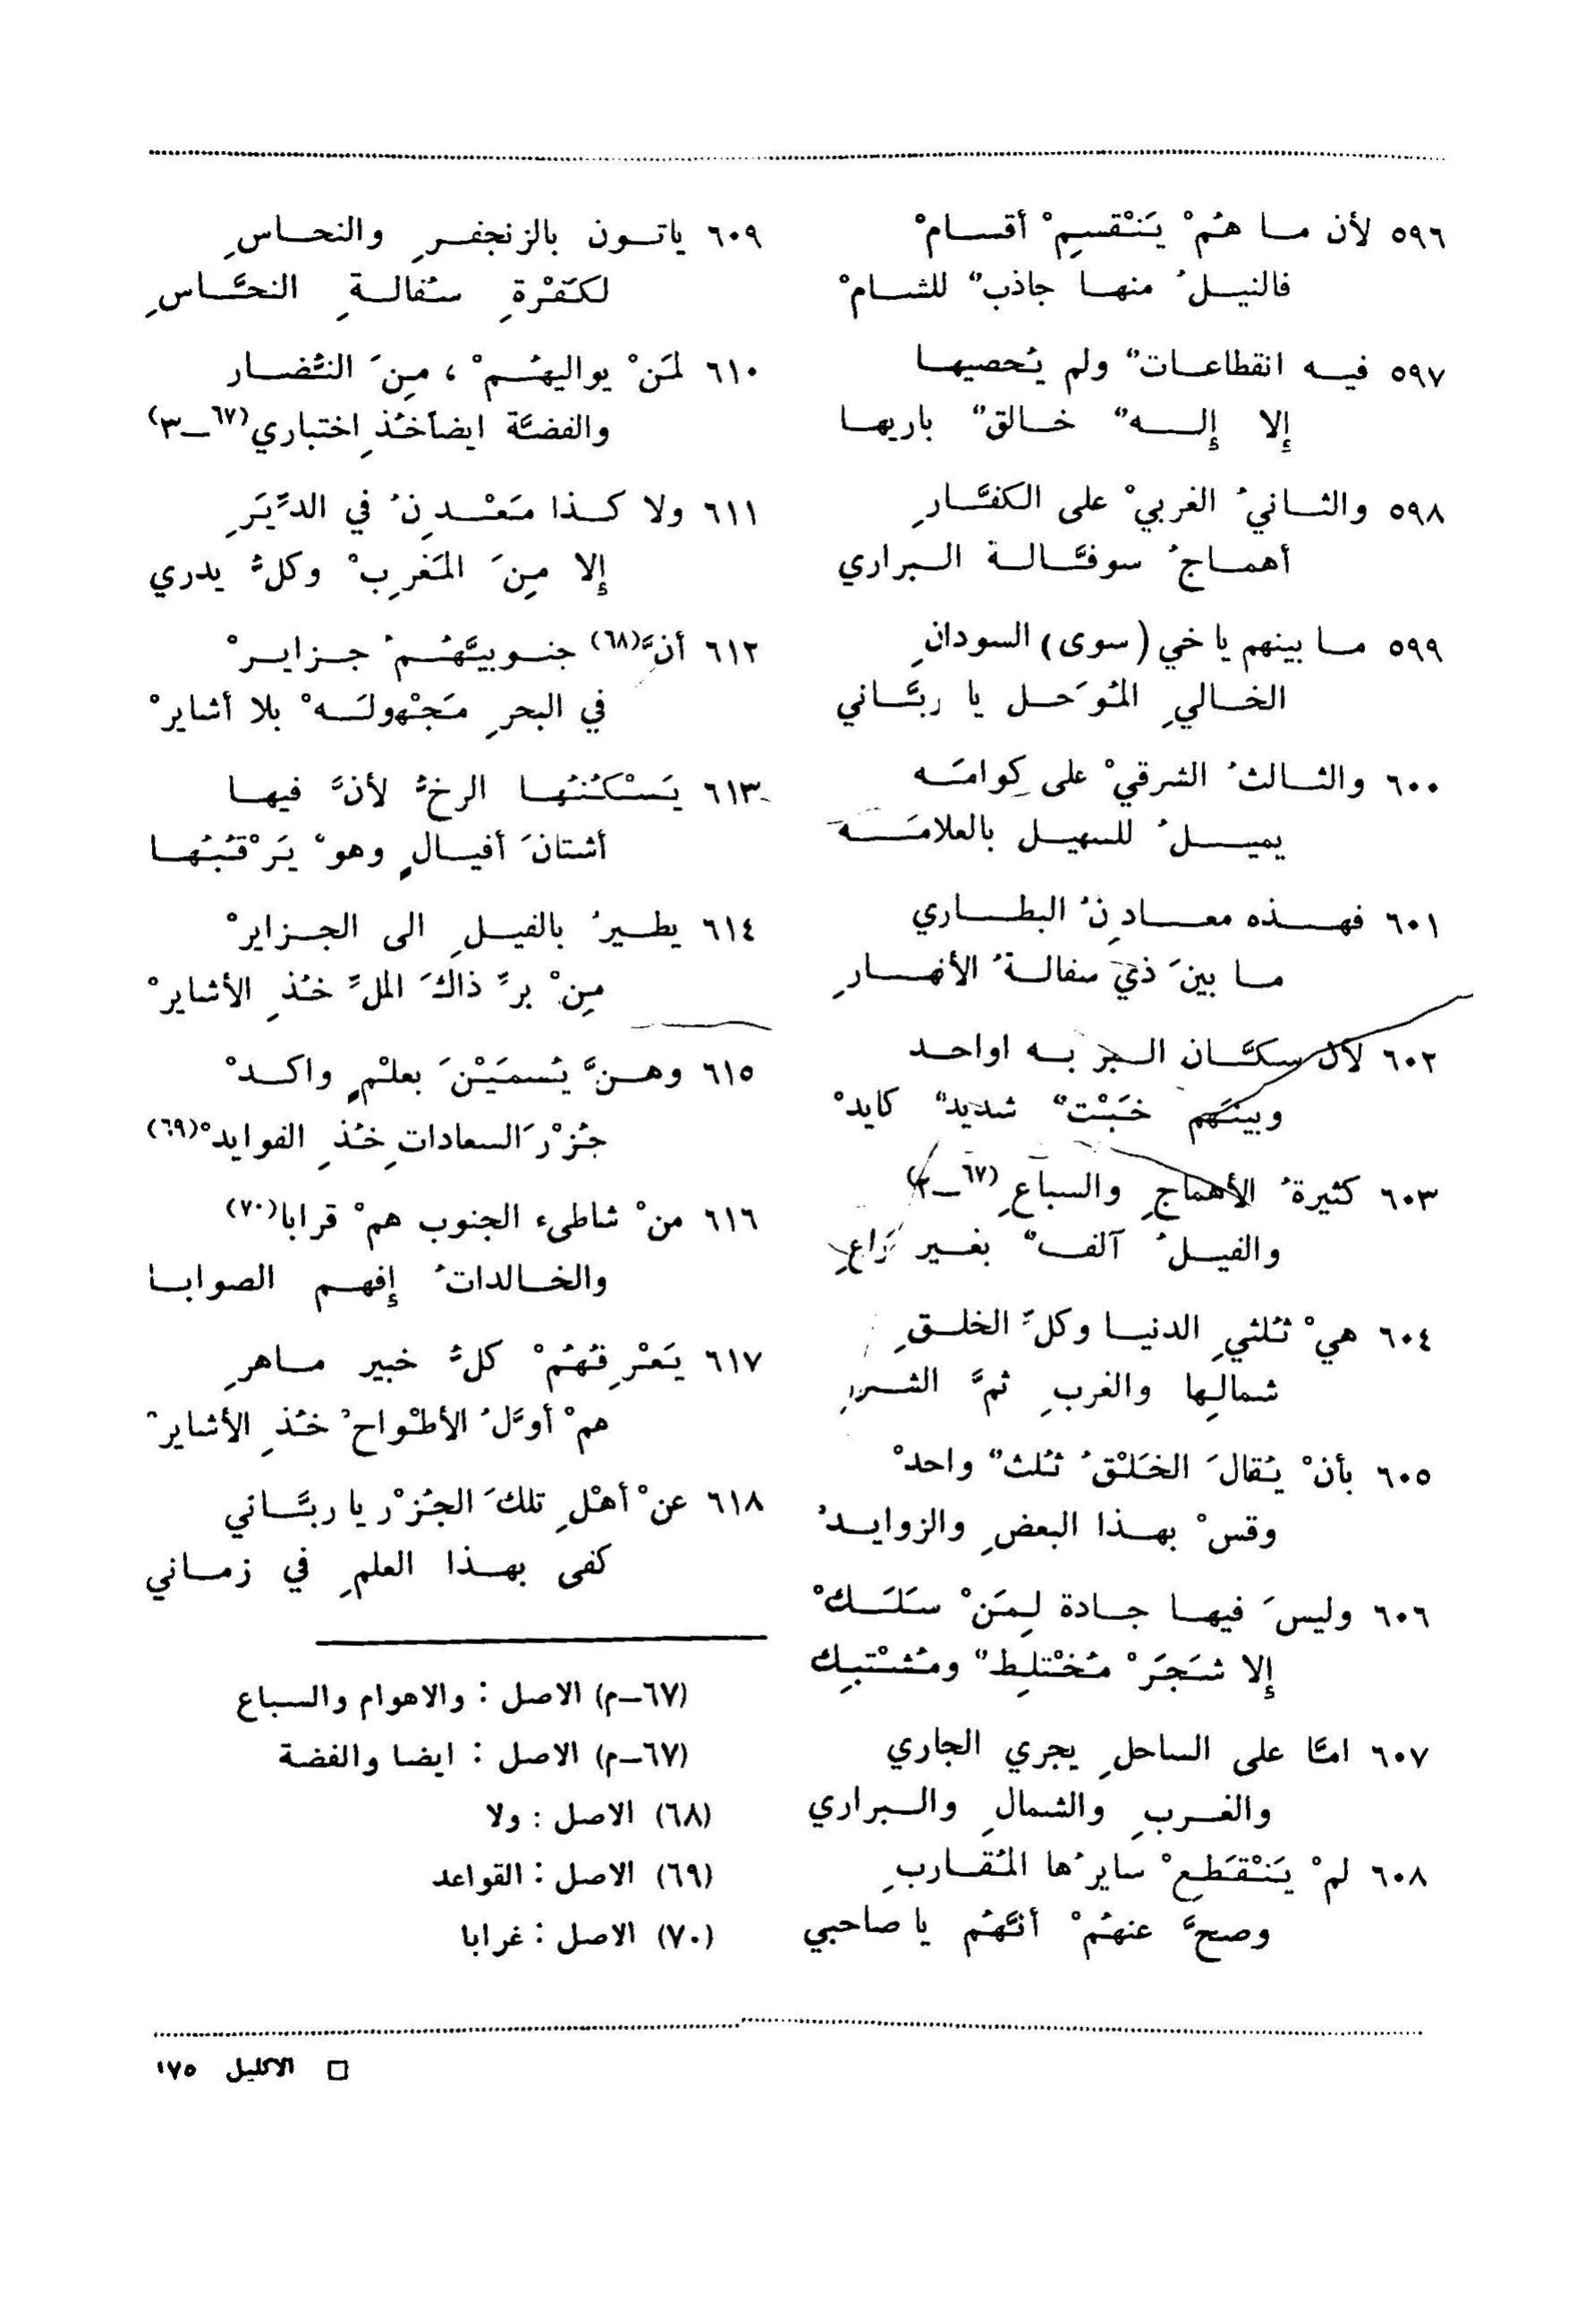 ٥٩٦ لأن ما هُمْ يَنْقسِمْ أقسامْ
فالنيلُ منها جاذبٌ للشامْ
٥٩٧ فيه انقطاعاتٌ ولم يُحصيها
إلا إلهٌ خالقٌ باريها
٥٩٨ والثانيُ الغربيْ على الكفَّارِ
أهماجُ سوفَّالة البراري
٥٩٩ ما بينهم يا خي (سوى) السودانِ
الخاليِ المُوَحل يا ربَّاني
٦٠٠ والثالثُ الشرقيْ على كِوامَه
يميلُ للسهيل بالعلامَه
٦٠١ فهذه معادِنُ البطاري
ما بينَ ذيَ سفالةُ الأنهارِ
٦٠٢ لأل سكَّان البر به اواحد
وبينَهم خَبْتٌ شديدٌ كايدْ
٦٠٣ كثيرةُ الأهماجِ والسباعِ (٦٧-٢)
والفيلُ آلفٌ بغير رَاعِ
٦٠٤ هيْ ثُلثيِ الدنيا وكلِّ الخلقِ
شمالِها والغربِ ثمَّ
٦٠٥ بأنْ يُقالَ الخَلْقُ ثُلثٌ واحدْ
وقسْ بهذا البعضِ والزوايدْ
٦٠٦ وليسَ فيها جادة لِمَنْ سَلَكْ
إلا شَجَرْ مُخْتلِطٌ ومُشْتبِك
٦٠٧ امَّا على الساحلِ يجري الجاري
والغربِ والشمالِ والبراري
٦٠٨ لمْ يَنْقَطِعْ سايرُها المُقاربِ
وصحَّ عنهُمْ أنَّهُم يا صاحبي
٦٠٩ ياتون بالزنجفرِ والنحاسِ
لكَفْرةِ سُفالةِ النحَّاسِ
٦١٠ لمَنْ يواليهُمْ ، مِنَ النُّضار
والفضَّة ايضاًخُذِ اختباري(٦٧-٣)
٦١١ ولا كذا مَعْدِنُ في الدَّيَرِ
إلا مِنَ المَغرِبْ وكلٌّ يدري
٦١٢ أنَّ(٦٨) جنوبيَّهُمُ جزايرْ
في البحرِ مَجْهولَهْ بلا أشايرْ
٦١٣ يَسْكُنُها الرخُّ لأنَّ فيها
أشتانَ أفيالٍ وهوْ يَرْقُبُها
٦١٤ يطيرُ بالفيلِ الى الجزايرْ
مِنْ برِّ ذاكَ الملِّ خُذِ الأشايرْ
٦١٥ وهنَّ يُسمَيْنَ بعلْمٍ واكدْ
جُزْرَ السعاداتِ خُذِ الفوايدْ(٦٩)
٦١٦ منْ شاطىء الجنوب همْ قرابا(٧٠)
والخالداتُ إفهم الصوابا
٦١٧ يَعْرِفهُمْ كلُّ خبير ماهرِ
همْ أوَّلُ الأطْواحْ خُذِ الأشايرْ
٦١٨ عنْ أهْلِ تلكَ الجُزْر يا ربَّاني
كفى بهذا العلمِ في زماني
(٦٧-م) الاصل : والاهوام والسباع
(٦٧-م) الاصل : ايضا والفضة
(٦٨) الاصل : ولا
(٦٩) الاصل : القواعد
(٧٠) الاصل : غرابا
□ الاكليل ١٧٥